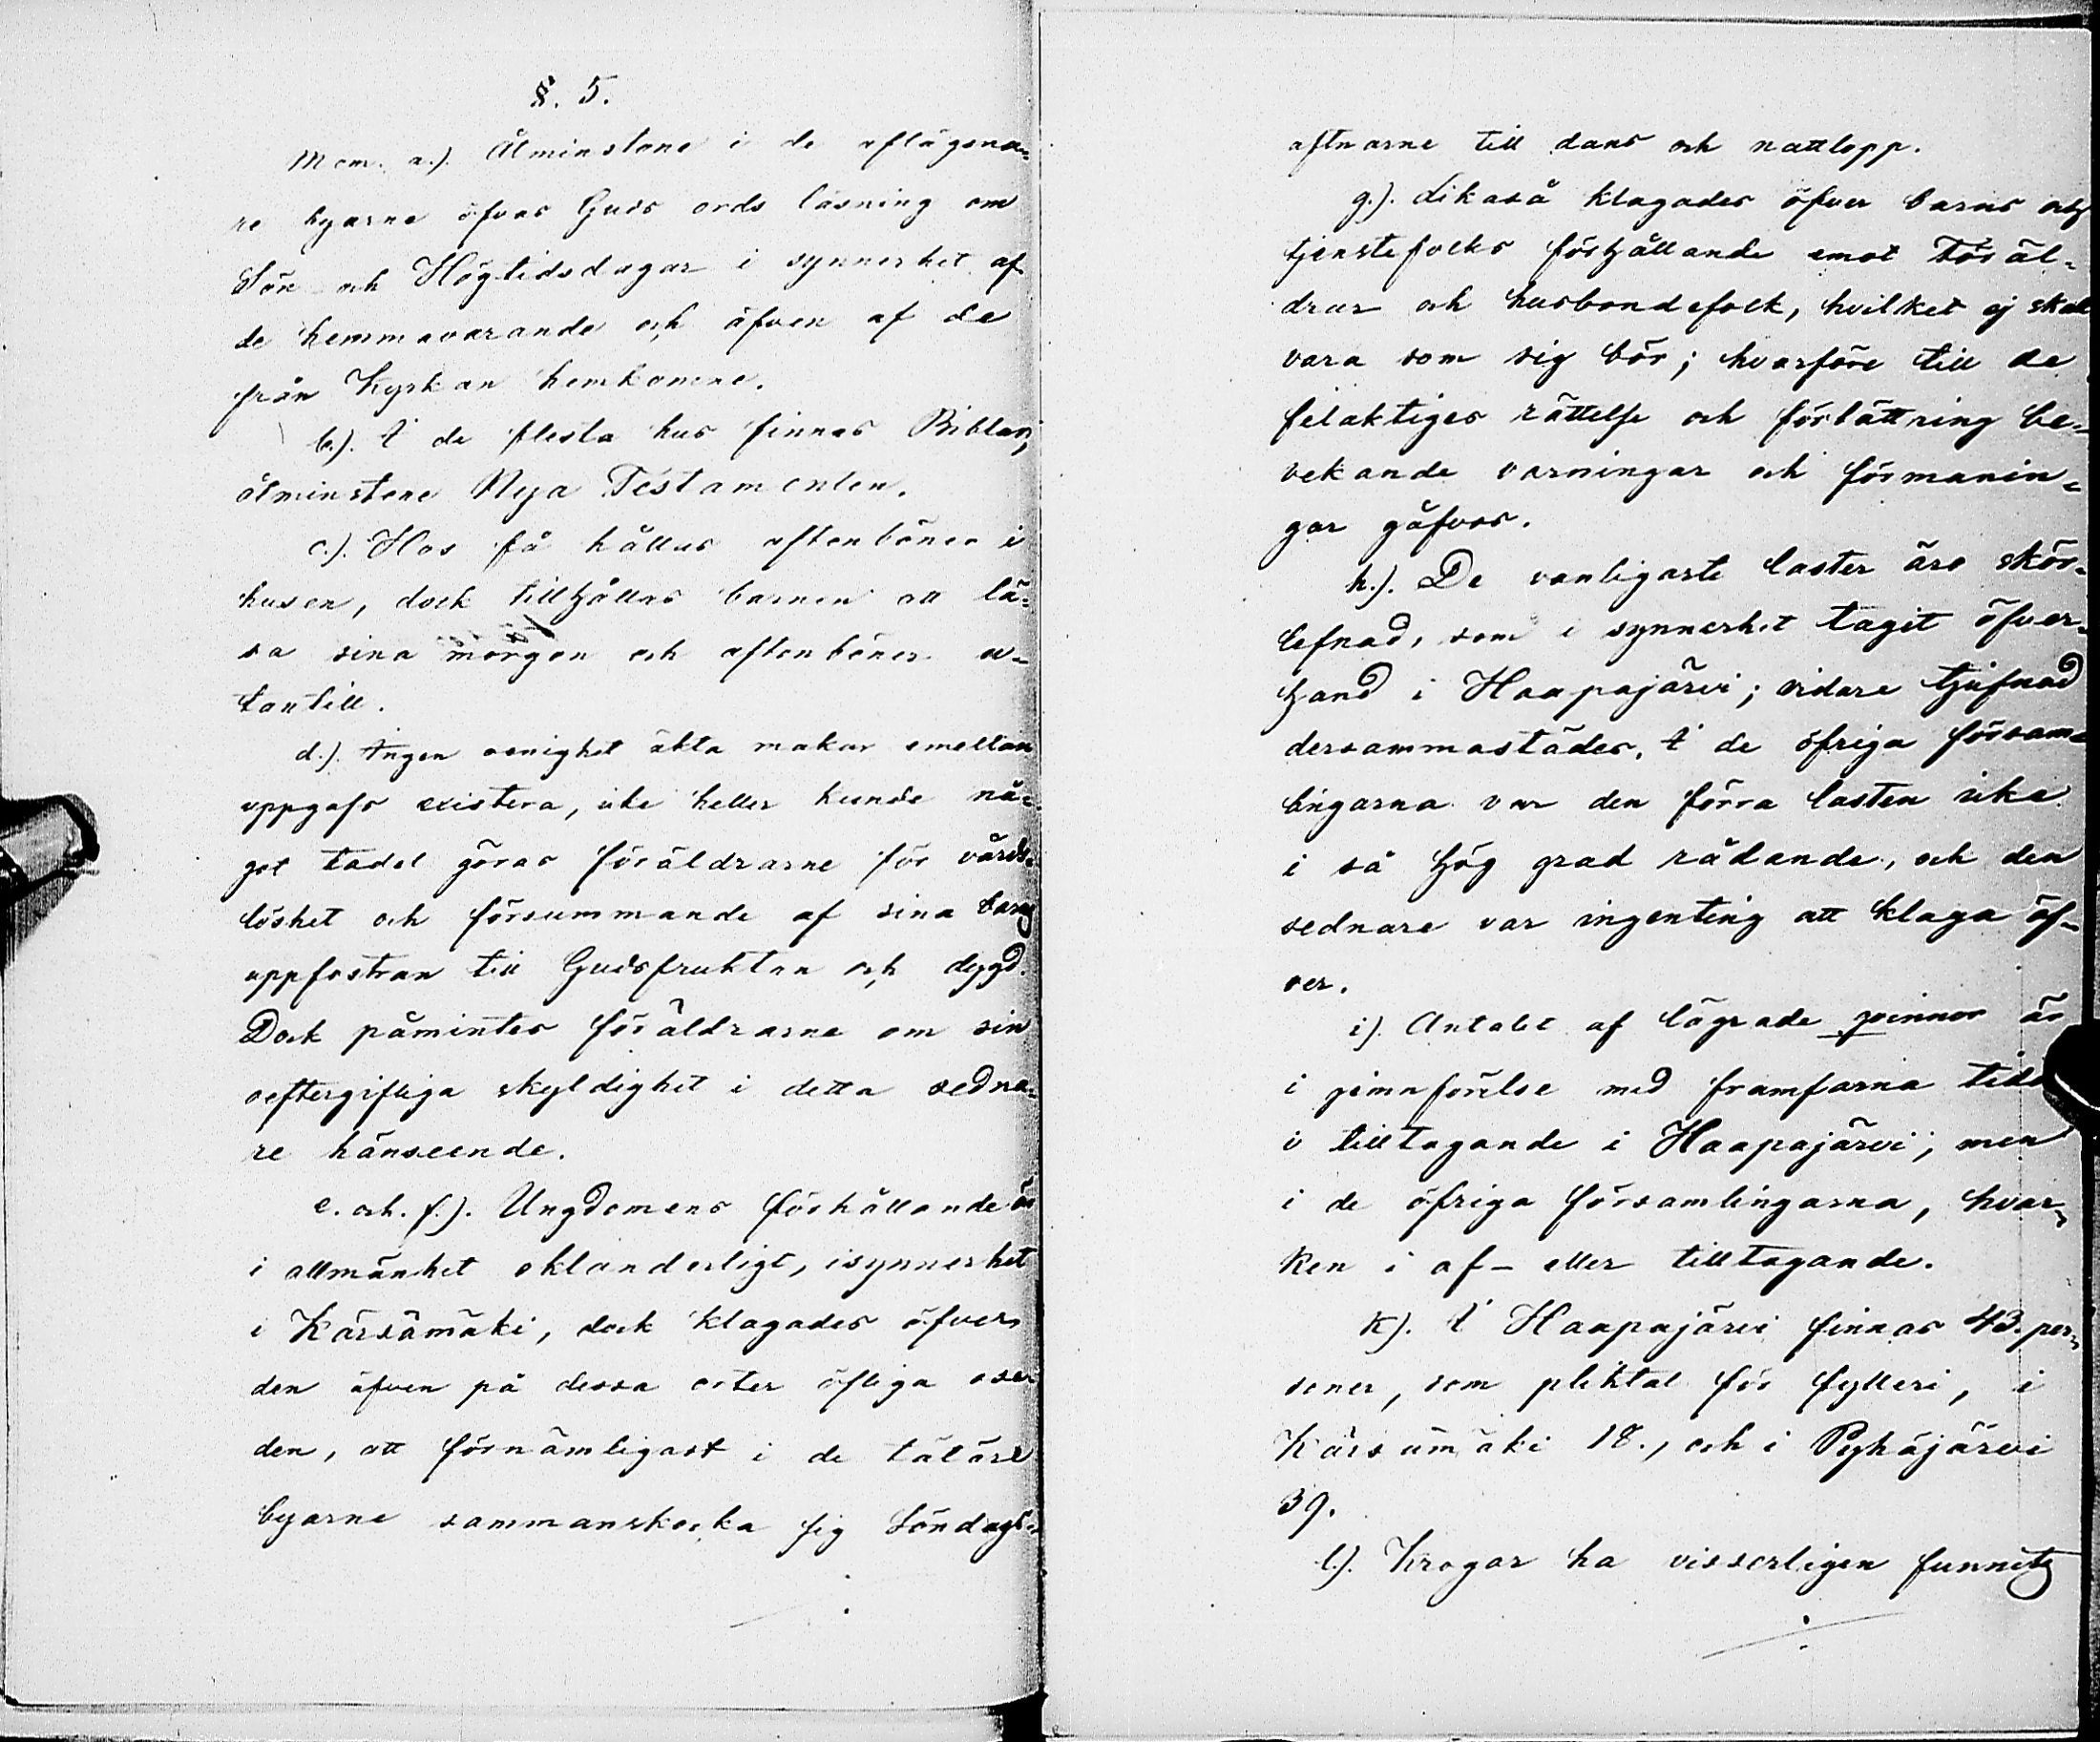 §. 5.
Mom. a.). Åtminstone i de aflägsna-
re byarne öfvas Guds ords läsning om
Sön och Högtidsdagar i synnerhet af
de hemmavarande och äfven af de
från Kyrkan hemkomne.
b.). I de flesta hus finnas Biblar,
åtminstone Nya Testamenten.
c.). Hos få hållas aftonböner i
husen, dock tillhållas barnen att lä-
sa sina morgon och aftonböner u-
tantill.
d.). Ingen oenighet äkta makar emellan
uppgafs existera, icke heller kunde nå-
got tadel göras föräldrarne för vårds-
löshet och försummande af sina barns
uppfostran till Gudsfruktan och dygd.
Dock påmintes föräldrarne om sin
oeftergifliga skyldighet i detta sedna-
re hänseende.
e. och. f.). Ungdomens förhållande är
i allmänhet oklanderligt, isynnerhet
i Kärsämäki, dock klagades öfver
den äfven på dessa orter öfliga ose-
den, att förnämligast i de tätare
byarne sammanskocka sig Söndags-
aftnarne till dans och nattlopp.
g.). Likaså klagades öfver barns och
tjenstefolks förhållande emot Föräl-
drar och husbondefolk, hvilket ej skall
vara som sig bör; hvarföre till de
felaktiges rättelse och förbättring be-
vekande varningar och förmanin-
gar gåfvos.
h.). De vanligaste laster äro skör-
lefnad, som i synnerhet tagit öfver-
hand i Haapajärvi; vidare tjufnad
dersammastädes. I de öfriga försam-
lingarna var den förra lasten icke
i så hög grad rådande, och den
sednare var ingenting att klaga öf-
ver.
i). Antalet af lägrade qvinnor är
i jemnförelse med framfarna tider
i tilltagande i Haapajärvi; men
i de öfriga församlingarna, hvar-
ken i af- eller tilltagande.
k). I Haapajärvi finnas 43. per-
soner, som pliktat för fylleri, i
Kärsämäki 18., och i Pyhäjärvi
39.
l.). Krogar ha visserligen funnits